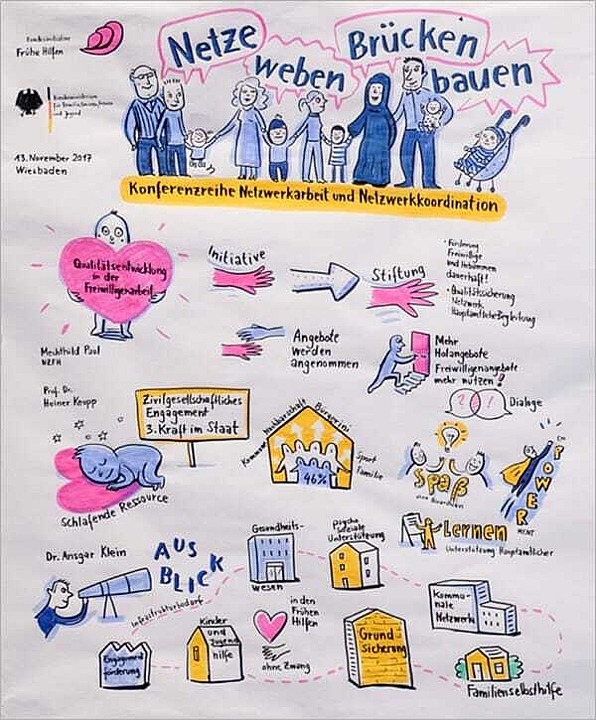 Bundesinitiative
Frühe Hilfen
Netze
weben
Brücken
bauen
Bundesministerium
für Familie, Senioren, Frauen
und Jugend
13. November 2017
Wiesbaden
Konferenzreihe Netzwerkarbeit und Netzwerkkoordination
Qualitätsentwicklung
in der
Freiwilligenarbeit
Mechthild Paul
NZFH
Initiative
Stiftung
• Förderung
Freiwillige
und Hebammen
dauerhaft!
• Qualitätssicherung
Netzwerk
Hauptamtliche Begleitung
Angebote
werden
angenommen
Mehr
Holangebote
Freiwilligenangebote
mehr nutzen!
Prof. Dr.
Heiner Keupp
Zivilgesellschaftliches
Engagement
3. Kraft im Staat
Schlafende Ressource
Kommune
Nachbarschaft
Bürgerini
Sport
Familie
46%
? !
Dialoge
Spaß
EM
POWER
MENT
Lernen
Unterstützung Hauptamtlicher
Dr. Ansgar Klein
AUS
BLICK
Infrastrukturbedarf
Gesundheits-
wesen
Psycho
soziale
Unterstützung
Kommu-
nale
Netzwerke
Engagement
förderung
Kinder
und
Jugend
hilfe
in den
Frühen
Hilfen
ohne Zwang
Grund
Sicherung
Familienselbsthilfe